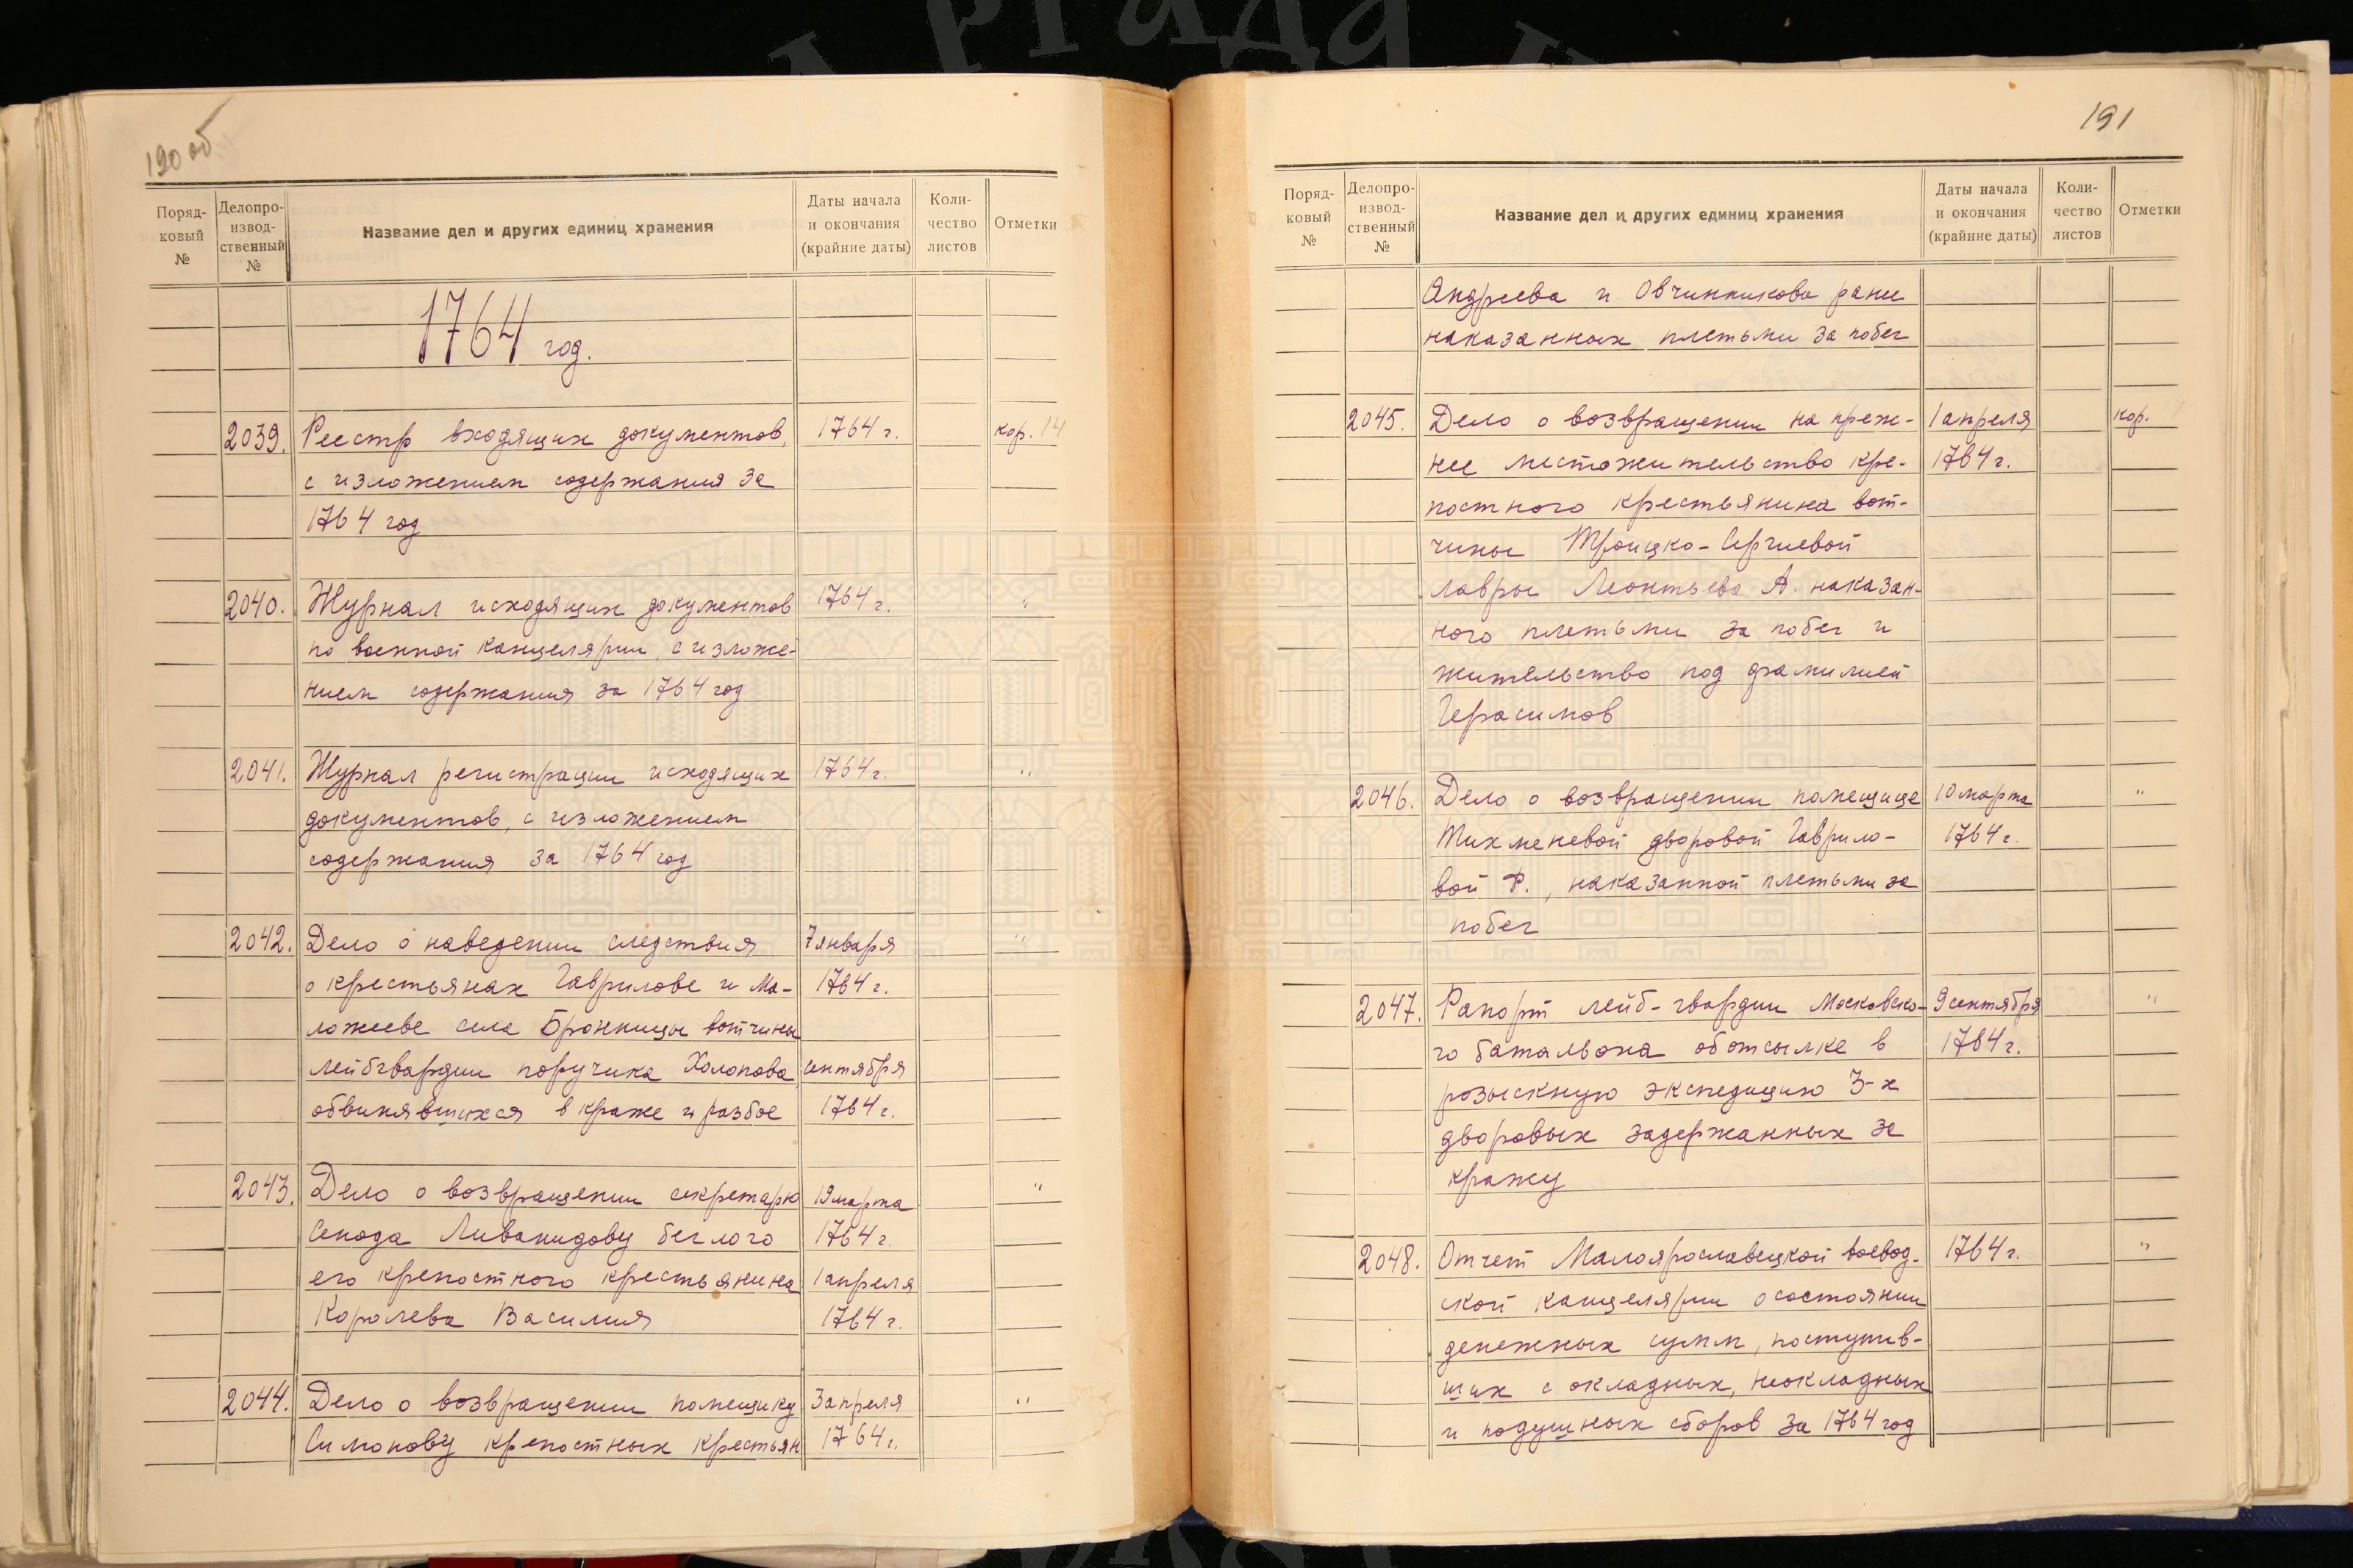 190 об
Поряд-
ковый
№
Делопро-
извод-
ственный
№
Название дел и других единиц хранения
Даты начала
и окончания
(крайние даты)
Коли-
чество
листов
Отметки
1764 год.
2039. Реестр входящих документов, 1764 г. кор. 14
с изложением содержания за
1764 год
2040. Журнал исходящих документов 1764 г. "
по военной канцелярии, с изложе-
нием содержания за 1764 год
2041. Журнал регистрации исходящих 1764 г. "
документов, с изложением
содержания за 1764 год
2042. Дело о наведении следствия 7 января "
о крестьянах Гаврилове и Ма- 1764 г.
ложееве села Бронницы вотчины
лейбгвардии поручика Холопова сентября
обвинявшихся в краже и разбое 1764 г.
2043. Дело о возвращении секретарю 19 марта "
Сенода Ливанидову беглого 1764 г.
его крепостного крестьянина 1 апреля
Королева Василия 1764 г.
2044. Дело о возвращении помещику 3 апреля "
Симонову крепостных крестьян 1764 г.
191
Поряд-
ковый
№
Делопро-
извод-
ственный
№
Название дел и других единиц хранения
Даты начала
и окончания
(крайние даты)
Коли-
чество
листов
Отметки
Андреева и Овчинникова ранее
наказанных плетьми за побег
2045. Дело о возвращении на преж- 1 апреля кор.
нее местожительство кре- 1764 г.
постного крестьянина вот-
чины Троицко-Сергиевой
лавры Леонтьева А. наказан-
ного плетьми за побег и
жительство под фамилией
Герасимов
2046. Дело о возвращении помещице 10 марта "
Тихменевой дворовой Гаврило- 1764 г.
вой Ф., наказанной плетьми за
побег
2047. Рапорт лейб-гвардии Московско- 9 сентября "
го батальона об отсылке в 1764 г.
розыскную экспедицию 3-х
дворовых задержанных за
кражу
2048. Отчет Малоярославецкой воевод- 1764 г. "
ской канцелярии о состоянии
денежных сумм, поступив-
ших с окладных, неокладных
и подушных сборов за 1764 год